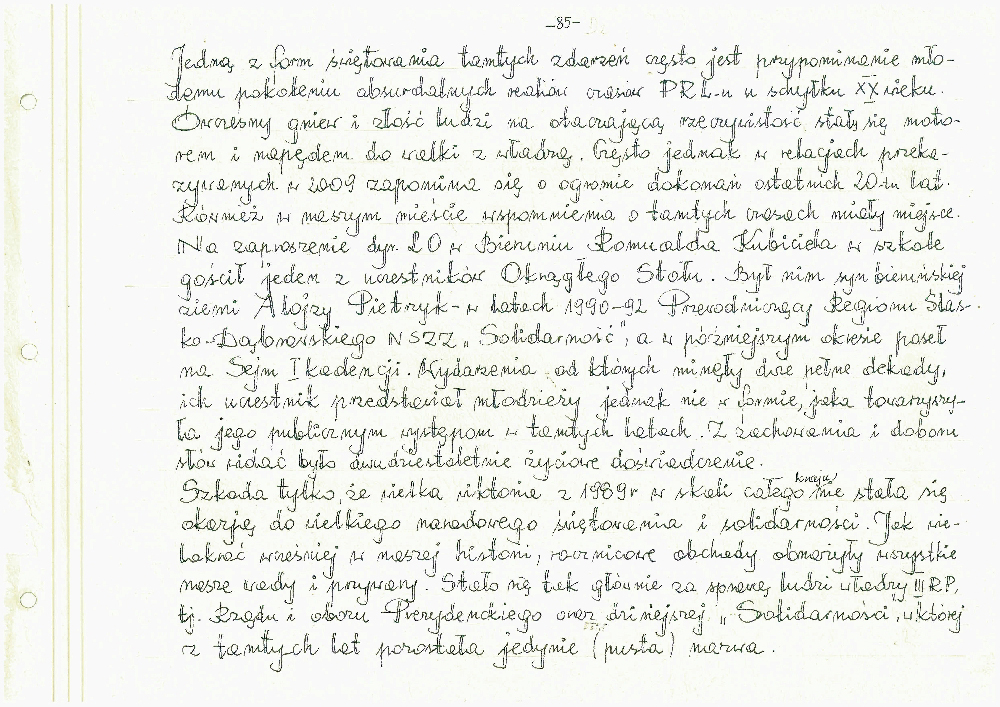 -85-
Jedną z form świętowania tamtych zdarzeń często jest przypominanie mło-
demu pokoleniu absurdalnych realiów czasów PRL-u u schyłku XX wieku.
Ówczesny gniew i złość ludzi na otaczającą rzeczywistość stały się moto-
rem i napędem do walki z władzą. Często jednak w relacjach przeka-
zywanych w 2009 zapomina się o ogromie dokonań ostatnich 20-tu lat.
Również w naszym mieście wspomnienia o tamtych czasach miały miejsce.
Na zaproszenie dyr. LO w Bieruniu Romualda Kubiciela w szkole
gościł jeden z uczestników Okrągłego Stołu. Był nim syn bieruńskiej
ziemi Alojzy Pietrzyk - w latach 1990-92 Przewodniczący Regionu Śląs-
ko-Dąbrowskiego NSZZ „Solidarność", a w późniejszym okresie poseł
na Sejm I kadencji. Wydarzenia od których minęły dwie pełne dekady,
ich uczestnik przedstawiał młodzieży jednak nie w formie, jaka towarzyszy-
ła jego publicznym występom w tamtych latach. Z zachowania i doboru
słów widać było dwudziestoletnie życiowe doświadczenie.
Szkoda tylko, że wielka wiktoria z 1989r w skali całego kraju nie stała się
okazją do wielkiego narodowego świętowania i solidarności. Jak wie-
lokroć wcześniej w naszej historii, rocznicowe obchody obnażyły wszystkie
nasze wady i przywary. Stało się tak głównie za sprawą ludzi władzy III RP,
tj. Rządu i obozu Prezydenckiego oraz dzisiejszej „Solidarności", w której
z tamtych lat pozostała jedynie (pusta) nazwa.